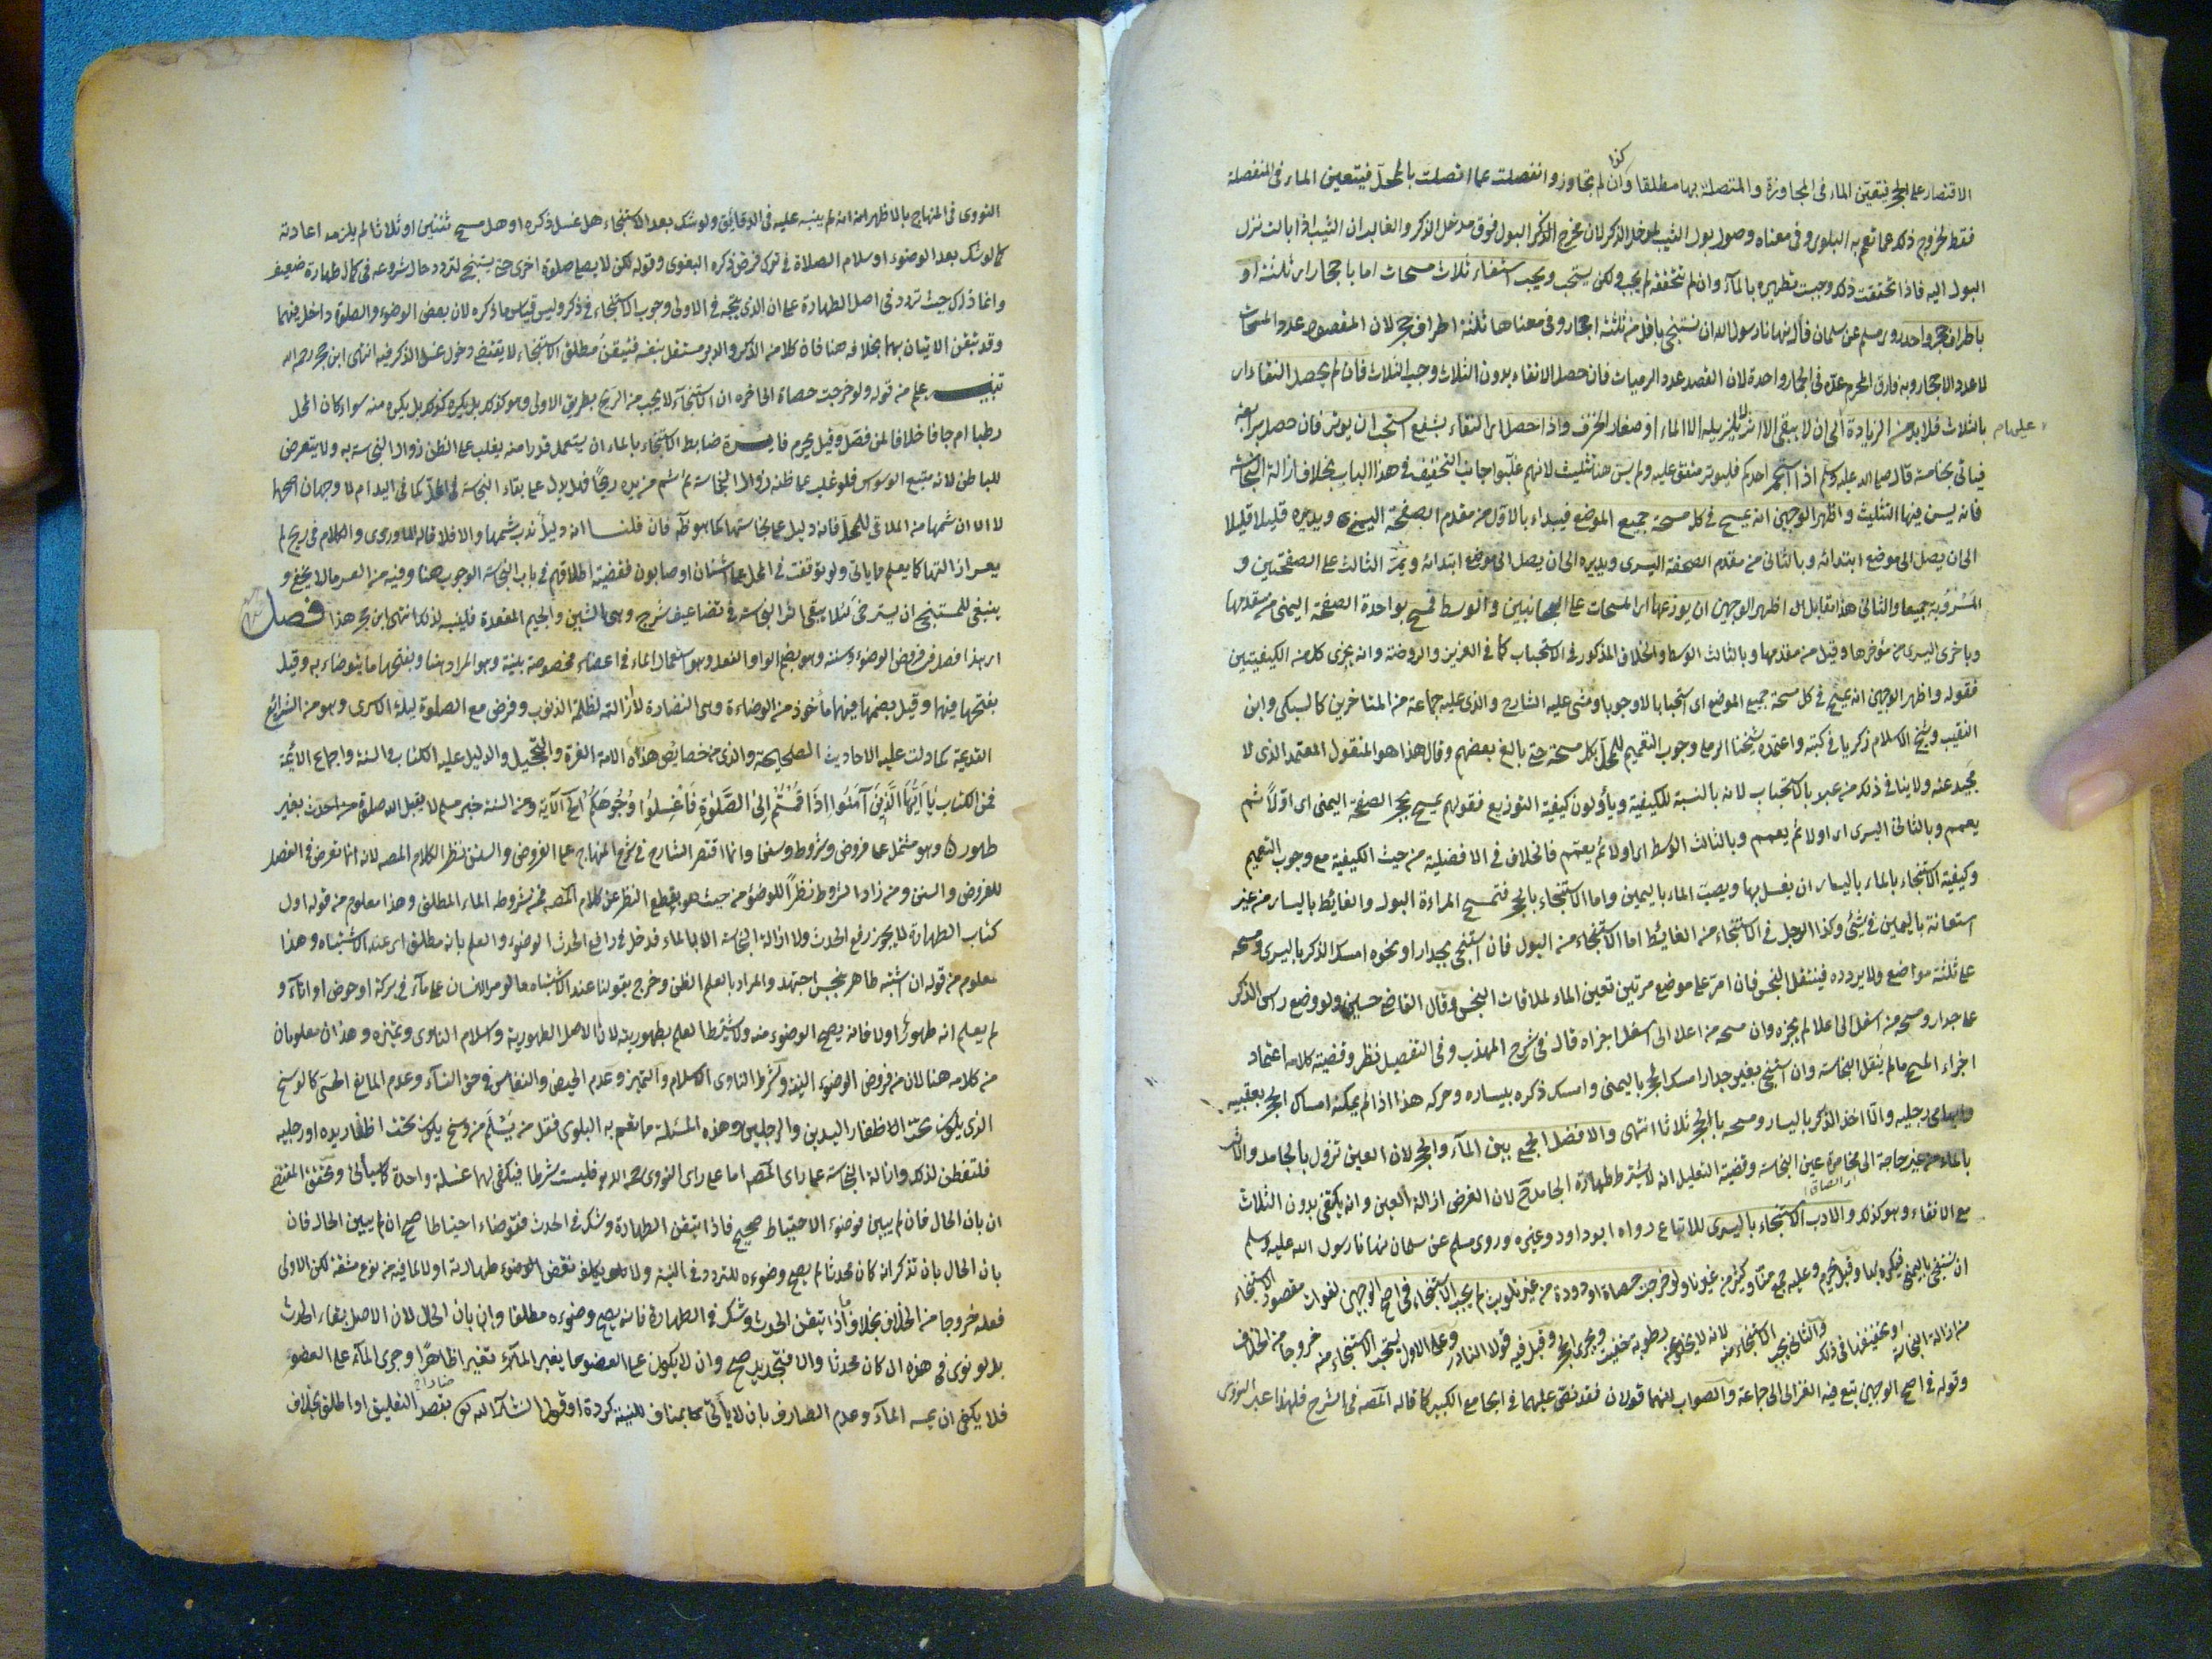 الاقتصار على الحجر فيتعين الماء في المجاوزة والمتصلة بها مطلقا وكذا ان لم تجاوز وانفصلت عما اتصلت بالمحل فيتعين الماء في المنفصلة
فقط لخروج ذلك عما تعم به البلوى وفي معناه وصول بول الثيب لمدخل الذكر لان مخرج البول فوق مدخل الذكر والغالب ان الثيب اذا بالت نزل
البول اليه فاذا تحققت ذلك وجبت تطهيره بالمآء وان لم تتحققه لم يجب ولكن يستحب ويجب استيفاء ثلاث مسحات اما باحجار اى ثلثة او
باطراف حجر واحد روى مسلم عن سلمان قال نهانا رسول الله ان نستنجي باقل من ثلثة احجار وفي معناها ثلثة اطراف حجر لان المقصود عدد المسحات
لا عدد الاحجار وبه فارق المحرم عده في الجمار واحدة لان القصد عدد الرميات فان حصل الانقاء بدون الثلاث وجب الثلاث فان لم يحصل النقاء اى
بالثلاث فلا بد من الزيادة الى ان لا يبقى الا اثر لا يزيله الا الماء او صغار الخزف واذا حصل النقاء بشفع استحب ان يوتر فان حصل برابعة
عليهام
فياتي بخامسة قال صلى الله عليه وسلم اذا استجمر احدكم فليوتر متفق عليه ولم يسن هنا تثليث لانهم غلبوا جانب التخفيف في هذا الباب بخلاف ازالة النجاسة
فانه يسن فيها التثليث واظهر الوجهين انه يمسح في كل مسحة جميع الموضع فيبداء بالاول من مقدم الصفحة اليمنى ويديره قليلا قليلا
الى ان يصل الى موضع ابتدائه وبالثاني من مقدم الصفحة اليسرى ويديره الى ان يصل الى موضع ابتدائه ويمر الثالث على الصفحتين و
المسربة جميعا والثاني هذا مقابل اظهر الوجهين ان يوزعها اى المسحات على الجانبين والوسط فيمسح بواحدة الصفحة اليمنى من مقدمها
وباخرى اليسرى من مؤخرها وقيل من مقدمها وبالثالث الوسط والخلاف المذكور في الاستحباب كما في العزيز والروضة وانه يجزى كل من الكيفيتين
فقوله واظهر الوجهين انه يمسح في كل مسحة جميع الموضع اى استحبابا لا وجوبا ومشى عليه الشارح والذى عليه جماعة من المتاخرين كالسبكي وابن
النقيب وشيخ الاسلام زكريا في كتبه واعتمده شيخنا الرملي وجوب التعميم للمحل بكل مسحة حتى بالغ بعضهم وقال هذا هو المنقول المعتمد الذى لا
محيد عنه ولا ينافي ذلك من عبر بالاستحباب لانه بالنسبة للكيفية ويأولون كيفية التوزيع فقولهم يمسح بحجر الصفحة اليمنى اى اولا ثم
يعمم وبالثاني اليسرى اى اولا ثم يعمم وبالثالث الوسط اى اولا ثم يعمم فالخلاف في الافضلية من حيث الكيفية مع وجوب التعميم
وكيفية الاستنجاء بالماء باليسار ان يغسل بها ويصب الماء باليمين واما الاستنجاء بالحجر فتمسح المراءة البول والغائط باليسار من غير
استعانة باليمين في شئ وكذا الرجل في الاستنجاء من الغائط اما الاستنجاء من البول فان استنجى بجدار او نحوه امسك الذكر باليسرى ومسحه
على ثلثة مواضع ولا يردده فينتقل النجس فان امره على موضع مرتين تعين الماء لملاقات النجس وقال القاضي حسين ولو وضع راس الذكر
على جدار ومسحه من اسفل الى اعلا لم يجزه وان مسحه من اعلا الى اسفل اجزاه قال في شرح المهذب وفي التفصيل نظر وقضية كلامه اعتماد
اجزاء المسح ما لم ينقل النجاسة وان استنجى بغير جدار امسك الحجر باليمنى وامسك ذكره بيساره وحركه هذا اذا لم يمكنه امساك الحجر بعقبيه
وابهامي رجليه والا اخذ الذكر باليسار ومسحه بالحجر ثلاثا انتهى والافضل الجمع بين المآء والحجر لان العين تزول بالجامد والاثر
بالماء من غير حاجة الى مخامرة عين النجاسة وقضية التعليل انه لا يشترط طهارة الجامد ح لان الغرض ازالة العين وانه يكتفي بدون الثلاث
مع الانقاء وهو كذلك والادب الاستنجاء باليسرى للاتباع رواه ابو داود وغيره وروى مسلم عن سلمان نهانا رسول الله عليه وسلم
ان نستنجى باليمنى فيكره بها وقيل يحرم وعليه جمع منا وكثير من غيرنا ولو خرجت حصاة او دودة من غير تلويث لم يجب الاستنجاء في اصح الوجهين لفوات مقصود الاستنجاء
من ازالة النجاسة او تخفيفها في ذلك والثاني يجب الاستنجاء منه لانه لا يخلو عن رطوبة خفيت ويجزى الحجر وقيل فيه قولا النادر وعلى الاول يستحب الاستنجاء منه خروجا من الخلاف
وقوله في اصح الوجهين تبع فيه الغزالي الى جماعة والصواب انهما قولان فقد نص عليهما في الجامع الكبير كما قاله المصه في الشرح فلهذا عبر النووى
النووى في المنهاج بالاظهر انه لم ينبه عليه في الدقائق ولو شك بعد الاستنجاء هل غسل ذكره او هل مسح ثنتين او ثلاثا لم يلزمه اعادته
كما لو شك بعد الوضوء او سلام الصلاة في ترك فرض ذكره البغوى وقوله لكن لا يصلي صلوة اخرى حتى يستنجي لتردده حال شروعه في كمال طهارة ضعيف
وانما ذلك حيث تردد في اصل الطهارة على ان الذى يتجه في الاولى وجوب الاستنجاء في ذكره وليس قياس ما ذكره لان بعض الوضوء والصلوة داخل فيهما
وقد تيقن الاتيان بهما بخلافه هنا فان كلا من الذكر والدبر مستقل بنفسه فتيقن مطلق الاستنجاء لا يقتضى دخول غسل الذكر فيه انتهى ابن حجر رحمه الله
تنبيه علم من قوله ولو خرجت حصاة الى اخره ان الاستنجآء لا يجب من الريح بطريق الاولى وهو كذلك بل يكره منه سواء كان المحل
رطبا ام جافا خلافا لمن فصل وقيل يحرم فايدة ضابط الاستنجاء بالماء ان يستعمل قدرا منه يغلب على الظن زوال النجاسة به ولا يتعرض
للباطن لانه منبع الوسوس فلو غلب على ظنه زوال النجاسة ثم شم من يده ريحا فهل يدل على بقاء النجاسة في المحل كما في اليد ام لا وجهان اصحهما
لا الا ان شمها من الملاقى للمحل فانه دليل على نجاستهما كما هو ظ فان قلنا انه دليل ندب شمها والا فلا قاله الماوردى والكلام في ريح لم
يعسر ازالتها كما يعلم مما ياتى ولو توقفت في المحل على اشنان او صابون فقضية اطلاقهم في باب النجاسة الوجوب هنا وفيه من العسر ما لا يخفى و
ينبغي للمستنجي ان يسترخى لئلا يبقى اثر النجاسة في تضاعيف شرج وهي بالشين والجيم المقعدة فليتنبه لذلك انتهى ابن حجر هذا فصل
اى هذا فصل في فروض الوضوء وسننه وهو بضم الواو الفعل وهو استعمال الماء في اعضاء مخصوصة بنية وهو المراد هنا وبفتحها ما يتوضاء به وقيل
بفتحها فيهما وقيل بضمها فيهما مأخوذ من الوضاءة وهي النضارة لازالته لظلمة الذنوب وفرض مع الصلوة ليلة الاسرى وهو من الشرائع
القديمة كما دلت عليه الاحاديث الصحيحة والذى من خصائص هذه الامة الغرة والتحجيل والدليل عليه الكتاب والسنة واجماع الائمة
فمن الكتاب يا ايها الذين آمنوا اذا قمتم الى الصلوة فاغسلوا وجوهكم الخ الآية ومن السنة خبر مسلم لا يقبل الله صلوة من احدث بغير
طهور ه وهو مشتمل على فروض وشروط وسنن وانما اقتصر الشارح في شرح المنهاج على الفروض والسنن نظرا لكلام المصه لانه انما تعرض في الفصل
للفروض والسنن ومن زاد الشروط نظرا للوضوء من حيث هو بقطع النظر عن كلام المصه فمن شروطه الماء المطلق وهذا معلوم من قوله اول
كتاب الطهارة لا يجوز رفع الحدث ولا ازالة النجاسة الا بالماء فدخل في رافع الحدث الوضوء والعلم بانه مطلق اى عند الاشتباه وهذا
معلوم من قوله ان اشتبه طاهر بنجس اجتهد والمراد بالعلم الظن وخرج بقولنا عند الاشتباه ما لو مر الانسان على مآء في بركة او حوض او انآء و
لم يعلم انه طهور اولا فانه يصح الوضوء منه ولا يشترط العلم بطهوريته لان الاصل الطهورية واسلام الناوى وتميزه وهذان معلومان
من كلامه هنا لان من فروض الوضوء النية وشرط الناوى الاسلام والتميز وعدم الحيض والنفاس في حق النسآء وعدم المانع الحسى كالوسخ
الذى يكون تحت الاظفار اليدين والرجلين وهذه المسئلة مما تعم به البلوى فقل من يسلم من وسخ يكون تحت اظفار يده او رجليه
فلتفطن لذلك وازالة النجاسة على راى المصه اما على راى النووى رحمه الله فليست شرطا فيكفى لهما غسلة واحدة كما سيأتى وتحقق المقتضى
ان بان الحال فان لم يبين فوضوء الاحتياط صحيح فاذا تيقن الطهارة وشك في الحدث فتوضاء احتياطا صح ان لم يبين الحال فان
بان الحال بان تذكر انه كان محدثا لم يصح وضوءه للتردد في النية ولا يكلف نقض الوضوء طهارته اولا لما فيه من نوع مشقة لكن الاولى
فعله خروجا من الخلاف بخلاف ما اذا تيقن الحدث وشك في الطهارة فانه يصح وضوءه مطلقا وان بان الحال لان الاصل بقاء الحدث
بل لو نوى في هذه ان كان محدثا والا فتجديد صح وان لا يكون على العضو ما يغير المآء تغيرا ظاهرا وجرى المآء على العضو
فلا يكفى ان يمسه المآء وعدم الصارف بان لا يأتى بمناف للنية كردة او قول ان شآء الله لا بقصد التعليق او اطلق بخلاف